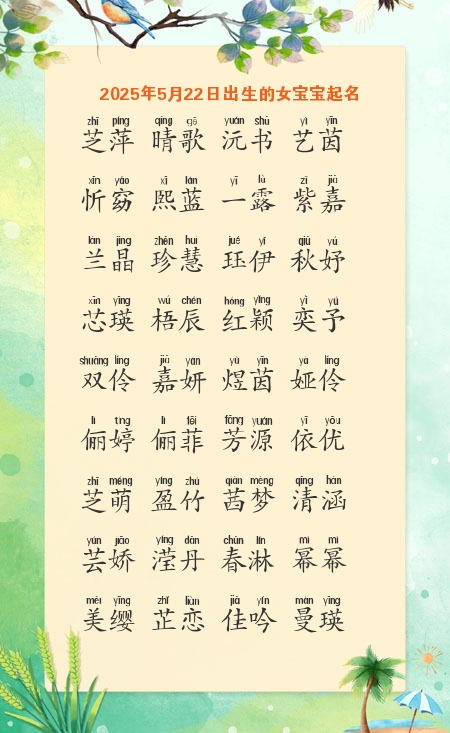 2025年5月22日出生的女宝宝起名
zhī píng qíng gē yuán shū yì yīn
芝萍 晴歌 沅书 艺茵
xīn yǎo xī lán yī lù zǐ jiā
忻窈 熙蓝 一露 紫嘉
lán jīng zhēn huì jué yī qiū yú
兰晶 珍慧 珏伊 秋妤
xīn yīng wú chén hóng yǐng yì yǔ
芯瑛 梧辰 红颖 奕予
shuāng líng jiā yán yù yīn yà líng
双伶 嘉妍 煜茵 娅伶
lì tíng lì fēi fāng yuán yī yōu
俪婷 俪菲 芳源 依优
zhī méng yíng zhú qiàn mèng qīng hán
芝萌 盈竹 茜梦 清涵
yún jiāo yíng dān chūn lín mì mì
芸娇 滢丹 春淋 幂幂
měi yīng zhǐ liàn jiā yín màn yīng
美缨 芷恋 佳吟 曼瑛